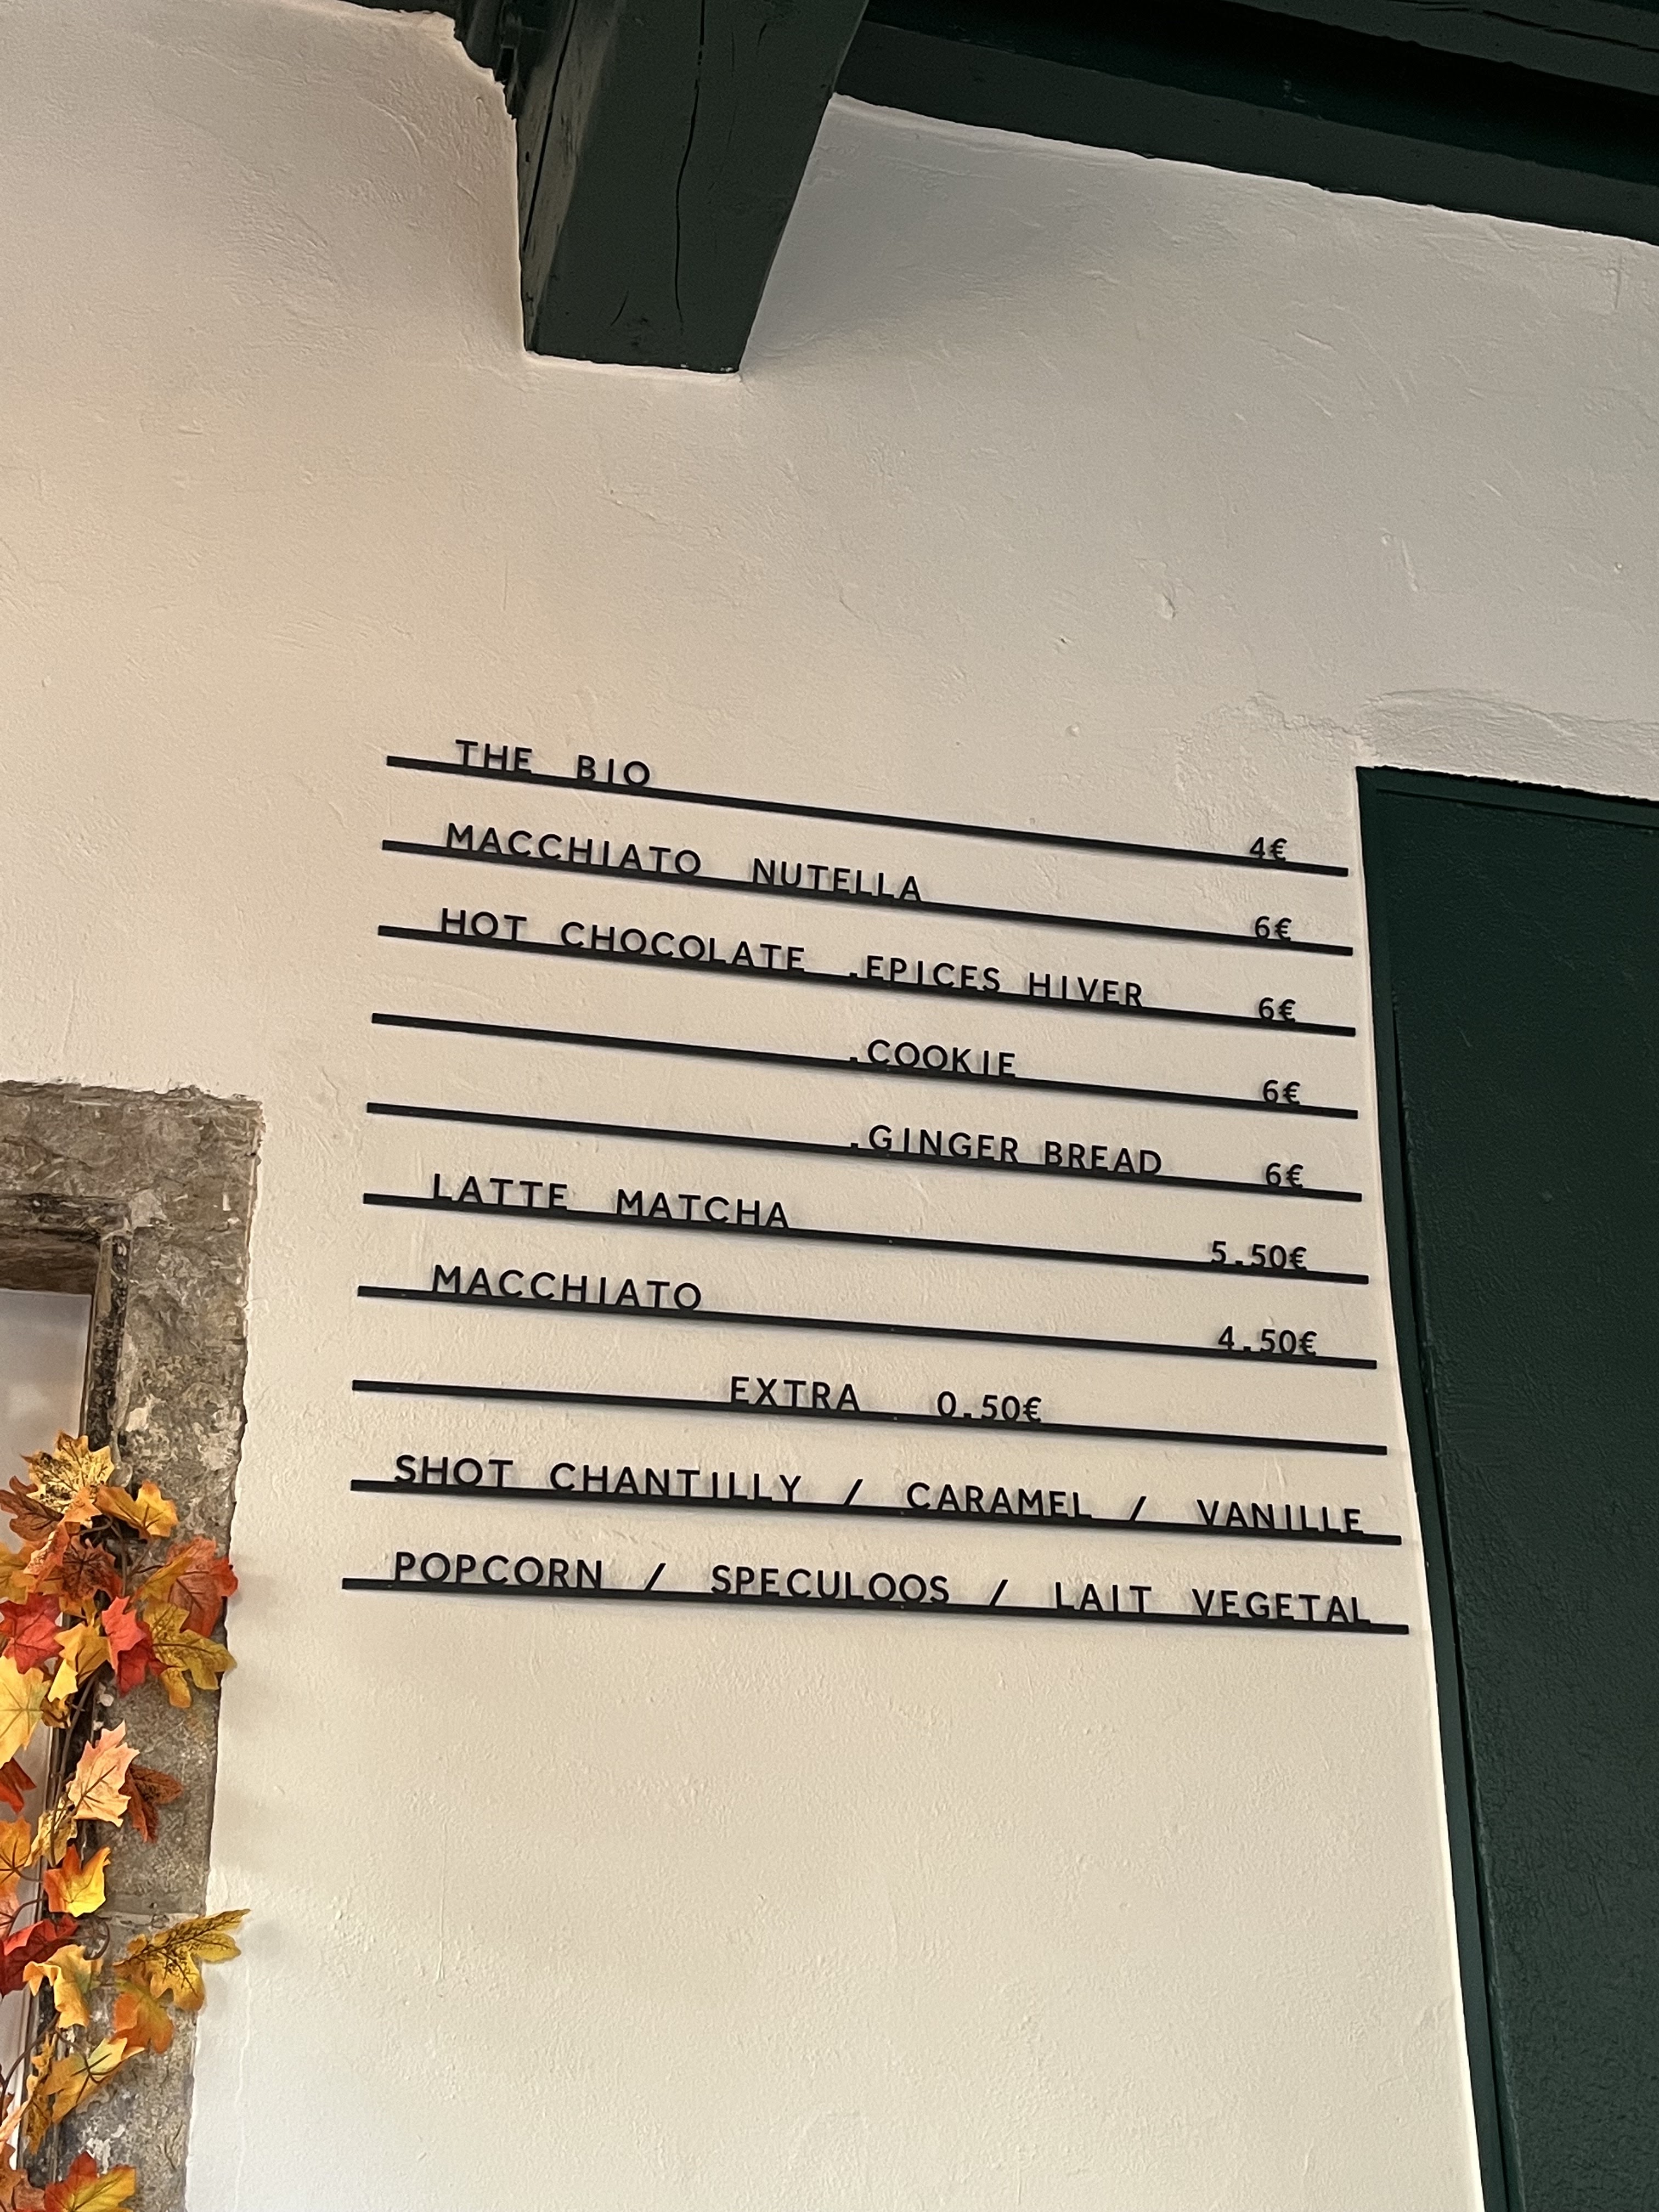 THE BIO 4€
MACCHIATO NUTELLA 6€
HOT CHOCOLATE .EPICES HIVER 6€
.COOKIE 6€
.GINGER BREAD 6€
LATTE MATCHA 5.50€
MACCHIATO 4.50€
EXTRA 0.50€
SHOT CHANTILLY / CARAMEL / VANILLE
POPCORN / SPECULOOS / LAIT VEGETAL